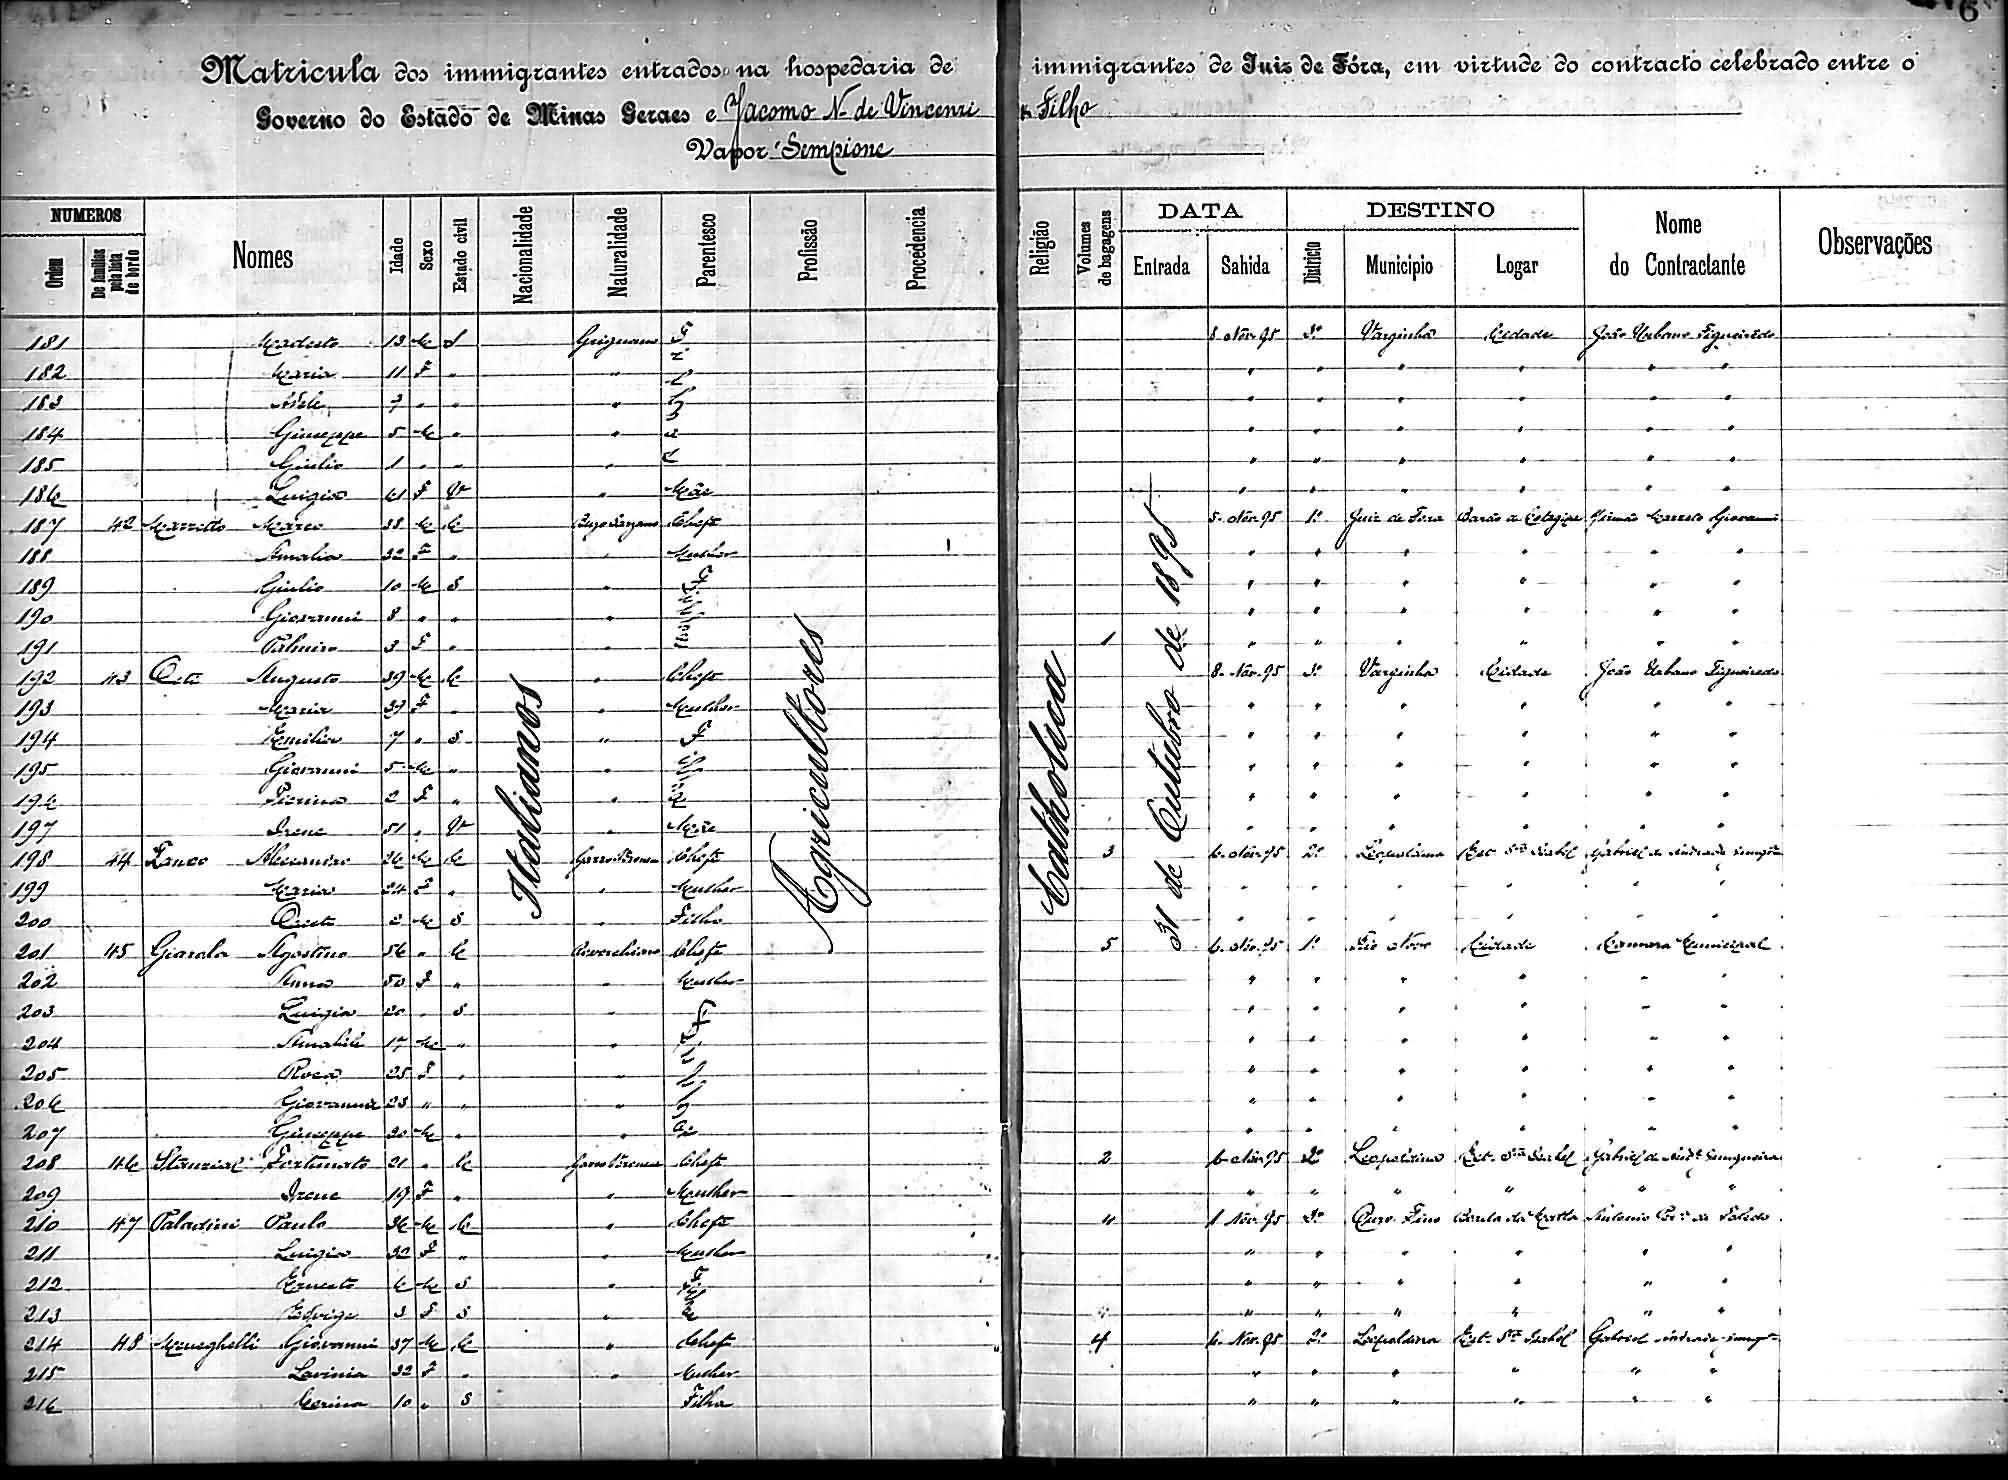 6
Matricula dos immigrantes entrados na hospedaria de immigrantes de Juiz de Fóra, em virtude do contracto celebrado entre o
Governo do Estado de Minas Geraes e Jacomo N. de Vincenzi & Filho
Vapor Sempione
NUMEROS
Ordem
De familias pela lista de bordo
Nomes
Idade
Sexo
Estado civil
Nacionalidade
Naturalidade
Parentesco
Profissão
Procedencia
Religião
Volumes de bagagens
DATA
Entrada
Sahida
DESTINO
Districto
Municipio
Logar
Nome do Contractante
Observações
Italianos
Agricultores
Catholica
31 de Outubro de 1895
181 Modesto 13 M S F 8 Nov. 95 3º Varginha Cidade João Urbano Figueiredo
182 Maria 11 F " " " " " " " " "
183 Adele 7 " " " " " " " " "
184 Giuseppe 5 M " " " " " " " "
185 Giulio 1 " " " " " " " " "
186 Luigia 61 F V " Mãe " " " " " "
187 42 Marco 38 M C Chefe 5 Nov. 95 1º Juiz de Fora Giovanni
188 Amalia 32 F " " Mulher " " " " " "
189 Giulio 10 M S " " " " " " "
190 Giovanni 8 " " " " " " " " "
191 3 F " " 1 " " " " " "
192 43 Augusto 39 M C " Chefe 8 Nov. 95 3º Varginha Cidade João Urbano Figueiredo
193 Maria 39 F " " Mulher " " " " " "
194 Emilia 7 " S " " " " " " "
195 Giovanni 5 M " " " " " " " "
196 2 F " " " " " " " "
197 Irene 51 " V " Mãe " " " " " "
198 44 Zanco 26 M C Chefe 3 6 Nov. 95 2º Leopoldina Est. Sta Isabel Gabriel de Andrade
199 Maria 24 F " " Mulher " " " " " "
200 2 M S " Filho " " " " " "
201 45 Giarola Agostino 56 " C Chefe 5 6 Nov. 95 1º Rio Novo Cidade Camara Municipal
202 Anna 50 F " " Mulher " " " " " "
203 Luigia 20 " S " " " " " " "
204 Amabile 17 M " " " " " " " "
205 Rosa 25 F " " " " " " " "
206 Giovanna 23 " " " " " " " " "
207 Giuseppe 20 M " " " " " " " "
208 46 Stanzial Fortunato 21 " C Chefe 2 6 Nov. 95 2º Leopoldina Est. Sta Isabel Gabriel de Junqueira
209 Irene 19 F " " Mulher " " " " " "
210 47 Paladini Paulo 36 M C " Chefe 4 1 Nov. 95 3º Ouro Fino Antonio de Toledo
211 Luigia 32 F " " Mulher " " " " " "
212 Ernesto 6 M S " " " " " " "
213 Edvige 3 F S " " " " " " "
214 48 Meneghelli Giovanni 37 M C " Chefe 4 6 Nov. 95 2º Leopoldina Est. Sta Isabel Gabriel Andrade
215 Lavinia 32 F " " Mulher " " " " " "
216 Corina 10 " S Filha " " " " " "